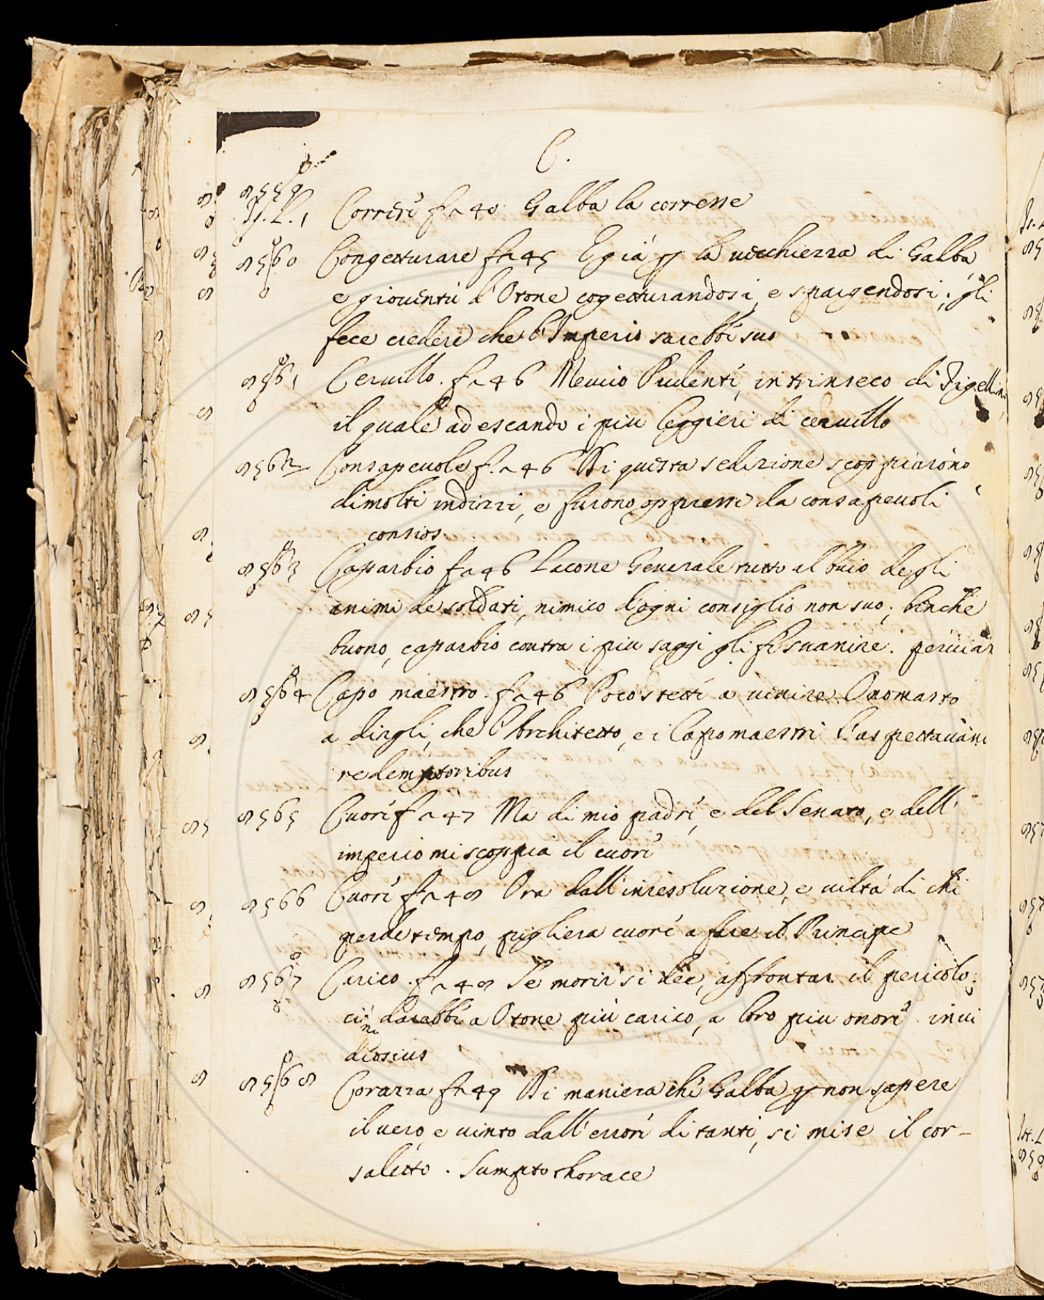 C.
8559
St. L. 1 Correre f~ 40 Galba la corresse
8560 Congetturare f~ 45 E già p la vecchiezza di Galba
e gioventù d'Otone cogetturandosi, e spargendosi; gli
fece credere che l'Imperio sarebbe suo
8561 Cervello. f~ 46 Mevio Pudente, intrinseco di Tigellino
il quale adescando i più leggieri di cervello
8562 Consapevole f. ~ 46 Di questa sedizione scoppiarono
dimolti indizzi, e furono oppressi da consapevoli
consios
8563 Caparbio f~ 46 Lacone Generale tutto al buio degli
animi de soldati, nimico d'ogni consiglio non suo; benche
buono, caparbio contra i più saggi gli fe suanire. pervicax
8564 Capo maestro. f~ 46 Poco stette a venire Onomasto
a dirgli, che l'Architetto, e i Capomaestri l'aspettavano
redemptoribus
8565 Cuore f~ 47 Ma di mio padre, e del Senato, e dell'
imperio mi scoppia il cuore
8566 Cuore f~ 48 Ora dall'irresoluzione, e viltà di chi
perde tempo, pigliera cuore a fare il Principe
8567 Carico. f~ 48 Se morir si dèe, affrontar il pericolo;
ciò darebbe a Otone più carico, a loro più onore. invi
diosius
8568 Corazza f~ 49 Di maniera che Galba p non sapere
il vero, e vinto dall'errore di tanti, si mise il cor-
saletto. Sumpto thorace